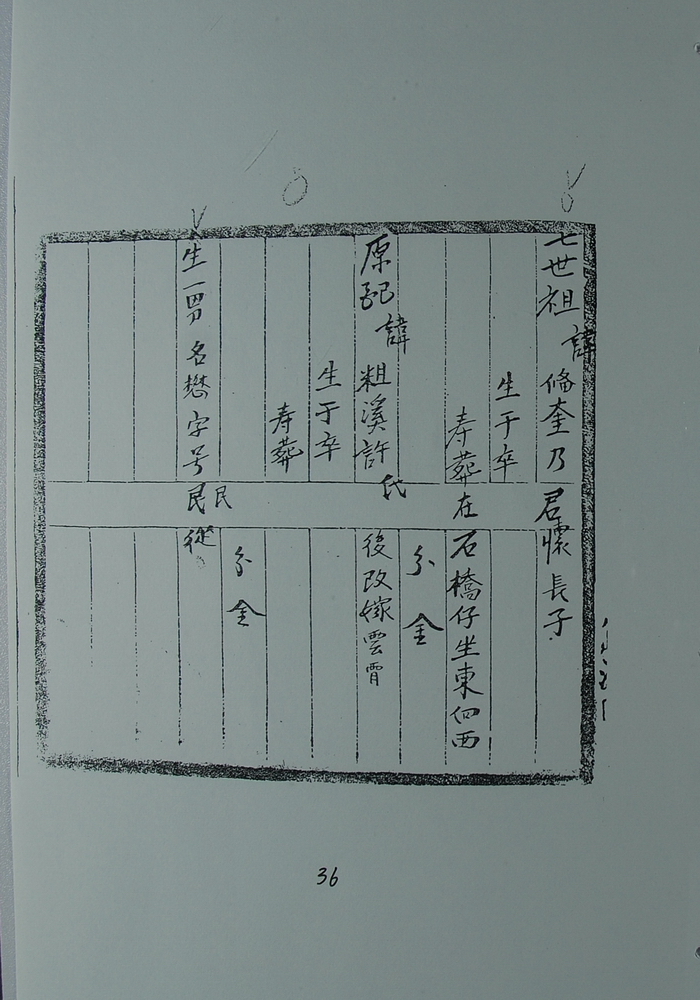 七世祖諱脩奎乃君懷長子
生于卒
寿葬在石橋仔坐東向西
分金
原配諱粗溪許氏後改嫁雲霄
生于卒
寿葬
分金
民
生一男名懋字号民從
36